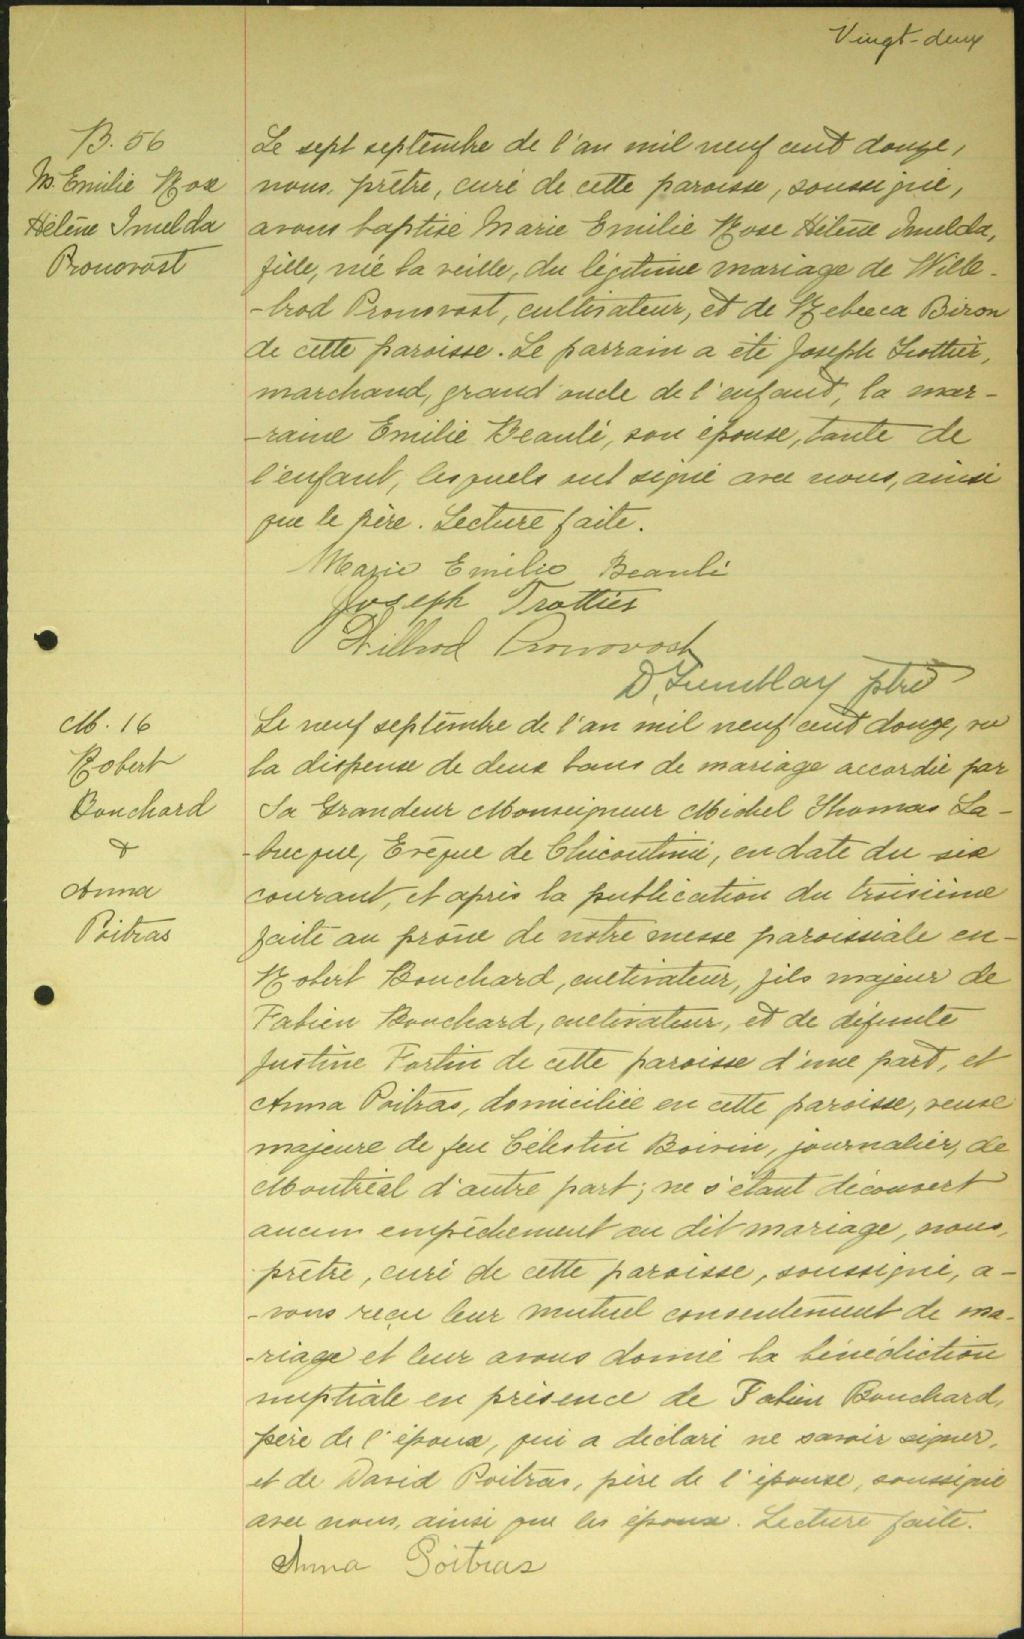 Vingt-deux
B. 56
M. Emilie Rose
Hélène Imelda
Pronovost
Le sept septembre de l'an mil neuf cent douze,
nous, prêtre, curé de cette paroisse, soussigné,
avons baptisé Marie Emilie Rose Hélène Imelda,
fille, née la veille, du légitime mariage de Wille-
-brod Pronovost, cultivateur, et de Rebecca Biron
de cette paroisse. Le parrain a été Joseph Trottier,
marchand, grand'oncle de l'enfant, la mar-
-raine Emilie Beaulé, son épouse, tante de
l'enfant, lesquels ont signé avec nous, ainsi
que le père. Lecture faite.
Marie Emilie Beaulé
Joseph Trottier
Wilbrod Pronovost
D. Tremblay ptre
M. 16
Robert
Bouchard
&
Anna
Poitras
Le neuf septembre de l'an mil neuf cent douze, vu
la dispense de deux bans de mariage accordée par
Sa Grandeur Monseigneur Michel Thomas La-
-brecque, Evêque de Chicoutimi, en date du six
courant, et après la publication du troisième
faite au prône de notre messe paroissiale en-
Robert Bouchard, cultivateur, fils majeur de
Fabien Bouchard, cultivateur, et de défunte
Justine Fortin de cette paroisse d'une part, et
Anna Poitras, domiciliée en cette paroisse, veuve
majeure de feu Célestin Boivin, journalier, de
Montréal d'autre part; ne s'étant découvert
aucun empêchement au dit mariage, nous,
prêtre, curé de cette paroisse, soussigné, a-
-vons reçu leur mutuel consentement de ma-
-riage et leur avons donné la bénédiction
nuptiale en présence de Fabien Bouchard,
père de l'époux, qui a déclaré ne savoir signer,
et de David Poitras, père de l'épouse, soussigné
avec nous, ainsi que les époux. Lecture faite.
Anna Poitras